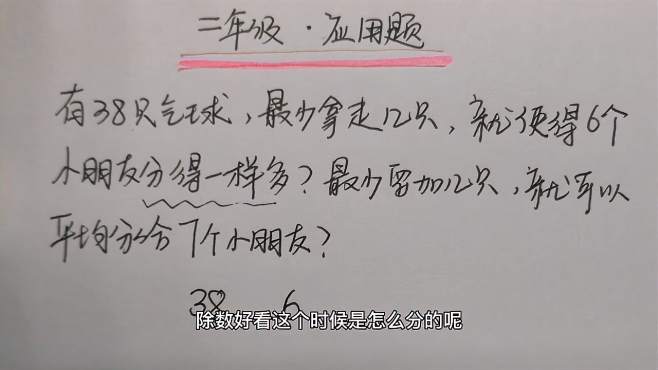 二年级·应用题
有38只气球,最少拿走几只,就使得6个
小朋友分得一样多?最少增加几只,就可以
平均分给7个小朋友?
38 6
除数好看这个时候是怎么分的呢